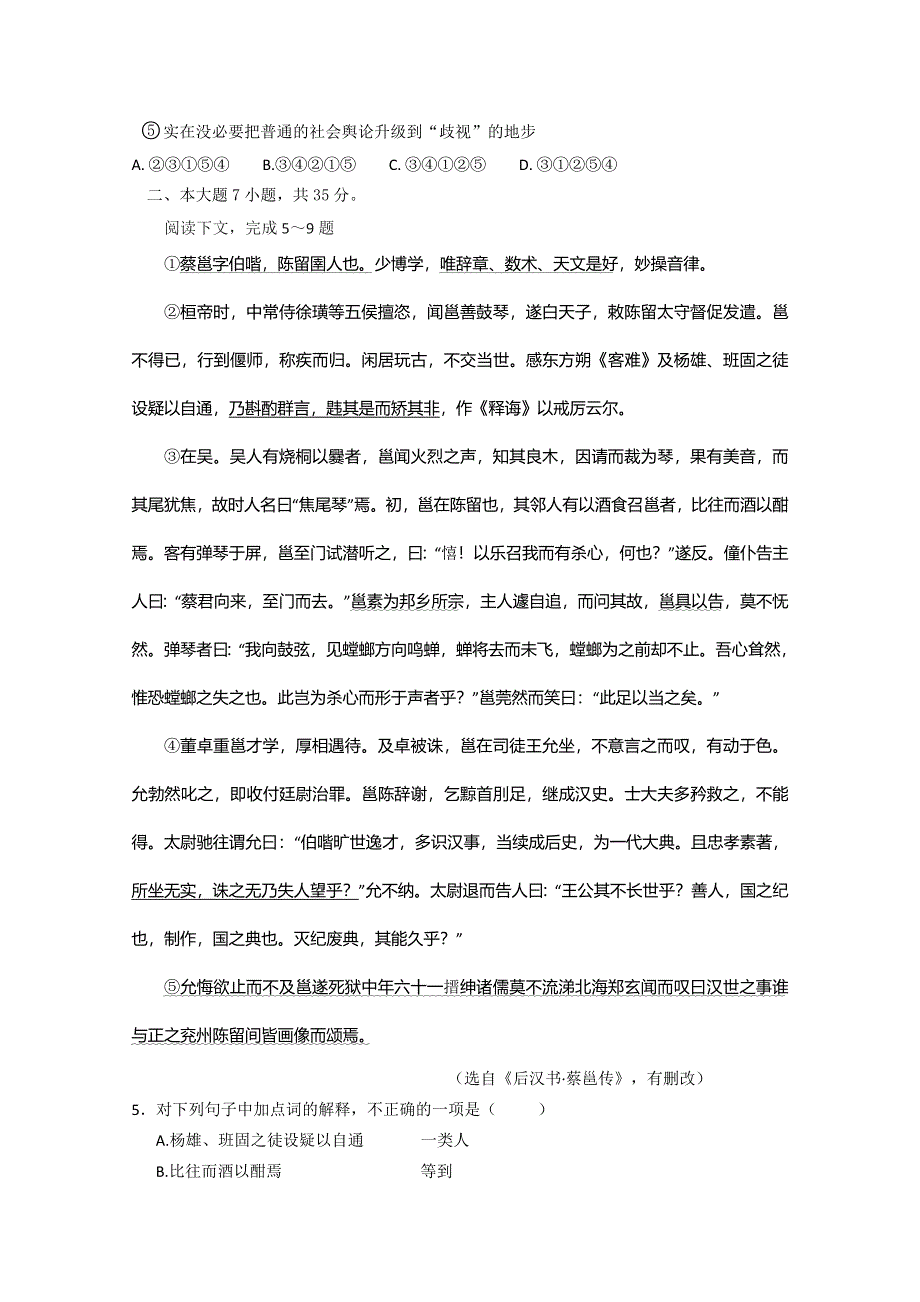 ⑤实在没必要把普通的社会舆论升级到“歧视”的地步
A. ②③①⑤④ B.③④②①⑤ C. ③④①②⑤ D. ③①②⑤④
二、本大题 7 小题，共 35 分。
阅读下文，完成 5～9 题
①蔡邕字伯喈，陈留圉人也。少博学，唯辞章、数术、天文是好，妙操音律。
②桓帝时，中常侍徐璜等五侯擅恣，闻邕善鼓琴，遂白天子，敕陈留太守督促发遣。邕
不得已，行到偃师，称疾而归。闲居玩古，不交当世。感东方朔《客难》及杨雄、班固之徒
设疑以自通，乃斟酌群言，韪其是而矫其非，作《释诲》以戒厉云尔。
③在吴。吴人有烧桐以爨者，邕闻火烈之声，知其良木，因请而裁为琴，果有美音，而
其尾犹焦，故时人名曰“焦尾琴”焉。初，邕在陈留也，其邻人有以酒食召邕者，比往而酒以酣
焉。客有弹琴于屏，邕至门试潜听之，曰：“憘！以乐召我而有杀心，何也？”遂反。僮仆告主
人曰：“蔡君向来，至门而去。”邕素为邦乡所宗，主人遽自追，而问其故，邕具以告，莫不怃
然。弹琴者曰：“我向鼓弦，见螳螂方向鸣蝉，蝉将去而未飞，螳螂为之前却不止。吾心耸然，
惟恐螳螂之失之也。此岂为杀心而形于声者乎？”邕莞然而笑曰：“此足以当之矣。”
④董卓重邕才学，厚相遇待。及卓被诛，邕在司徒王允坐，不意言之而叹，有动于色。
允勃然叱之，即收付廷尉治罪。邕陈辞谢，乞黥首刖足，继成汉史。士大夫多矜救之，不能
得。太尉驰往谓允曰：“伯喈旷世逸才，多识汉事，当续成后史，为一代大典。且忠孝素著，
所坐无实，诛之无乃失人望乎？”允不纳。太尉退而告人曰：“王公其不长世乎？善人，国之纪
也，制作，国之典也。灭纪废典，其能久乎？”
⑤允悔欲止而不及邕遂死狱中年六十一搢绅诸儒莫不流涕北海郑玄闻而叹曰汉世之事谁
与正之兖州陈留间皆画像而颂焉。
（选自《后汉书·蔡邕传》，有删改）
5．对下列句子中加点词的解释，不正确的一项是（ ）
A.杨雄、班固之徒设疑以自通 一类人
B.比往而酒以酣焉 等到